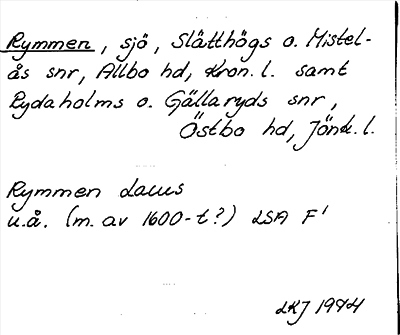 Rymmen, sjö, Slätthögs o. Mistel-
ås snr, Allbo hd, Kron. l. samt
Rydaholms o. Gällaryds snr,
Östbo hd, Jönk. l.
Rymmen Lacus
u.å. (m. av 1600-t?) LSA F'
LKJ 1974